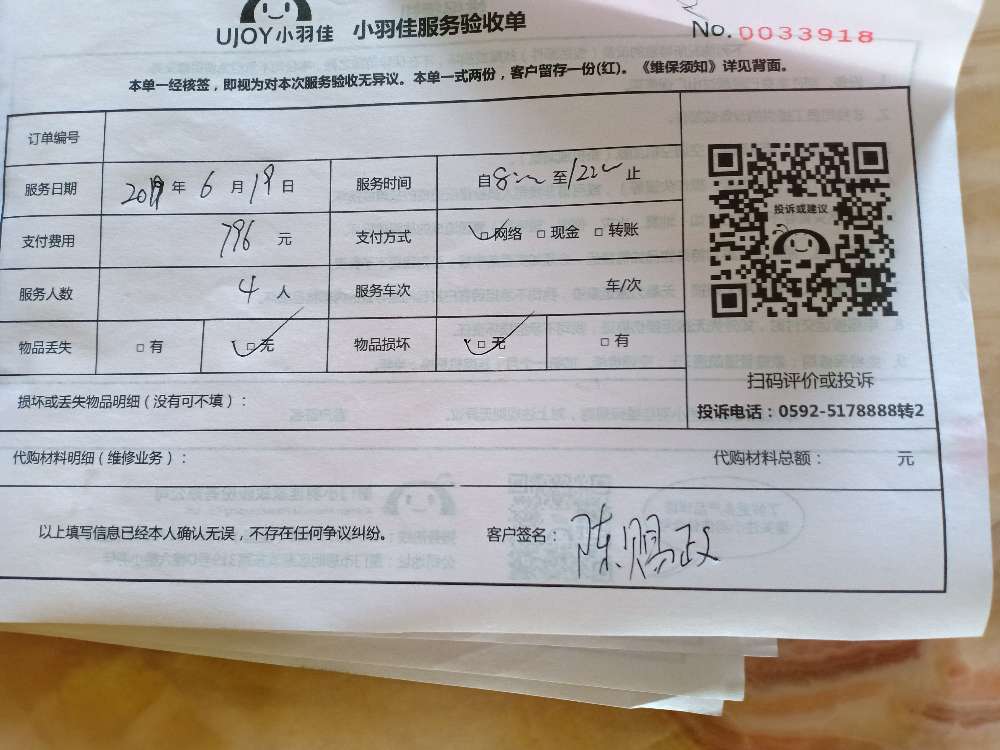 UJOY小羽佳 小羽佳服务验收单 No.0033918
本单一经核签，即视为对本次服务验收无异议。本单一式两份，客户留存一份(红)。《维保须知》详见背面。
订单编号
服务日期 2019年6月19日 服务时间 自8:00至12:00止
支付费用 796元 支付方式 网络 现金 转账
服务人数 4人 服务车次 车/次
物品丢失 有 无 物品损坏 无 有
损坏或丢失物品明细（没有可不填）：
投诉或建议
扫码评价或投诉
投诉电话：0592-5178888转2
代购材料明细（维修业务）： 代购材料总额： 元
以上填写信息已经本人确认无误，不存在任何争议纠纷。 客户签名：陈赐政